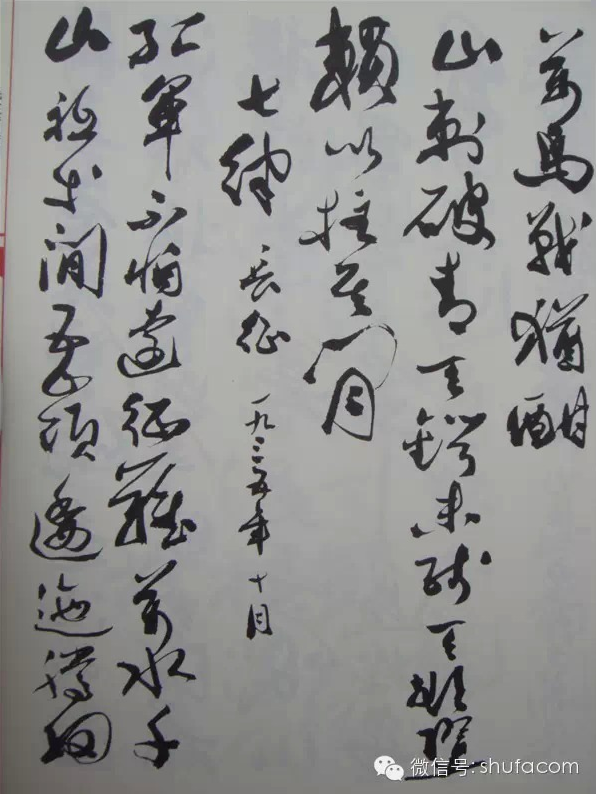 萬馬戰猶酣
山刺破青天鍔未殘天欲墮
賴以拄其間
七律 長征 一九三五年十月
紅軍不怕遠征難萬水千
山祗等閒五嶺逶迤騰細
微信号: shufacom